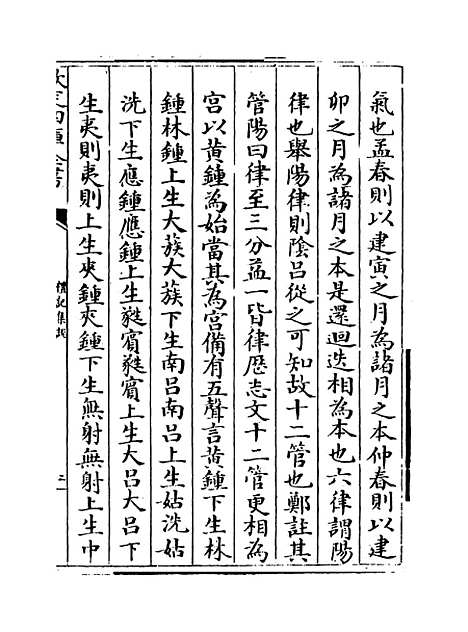 氣也孟春則以建寅之月為諸月之本仲春則以建
卯之月為諸月之本是還迴迭相為本也六律謂陽
律也舉陽律則陰呂從之可知故十二管也鄭註其
管陽曰律至三分益一皆律歴志文十二管更相為
宮以黄鍾為始當其為宮備有五聲言黄鍾下生林
鍾林鍾上生大蔟大蔟下生南呂南呂上生姑洗姑
洗下生應鍾應鍾上生蕤賓蕤賓上生大呂大呂下
生夷則夷則上生夾鍾夾鍾下生無射無射上生中
欽定四庫全書
禮記集說